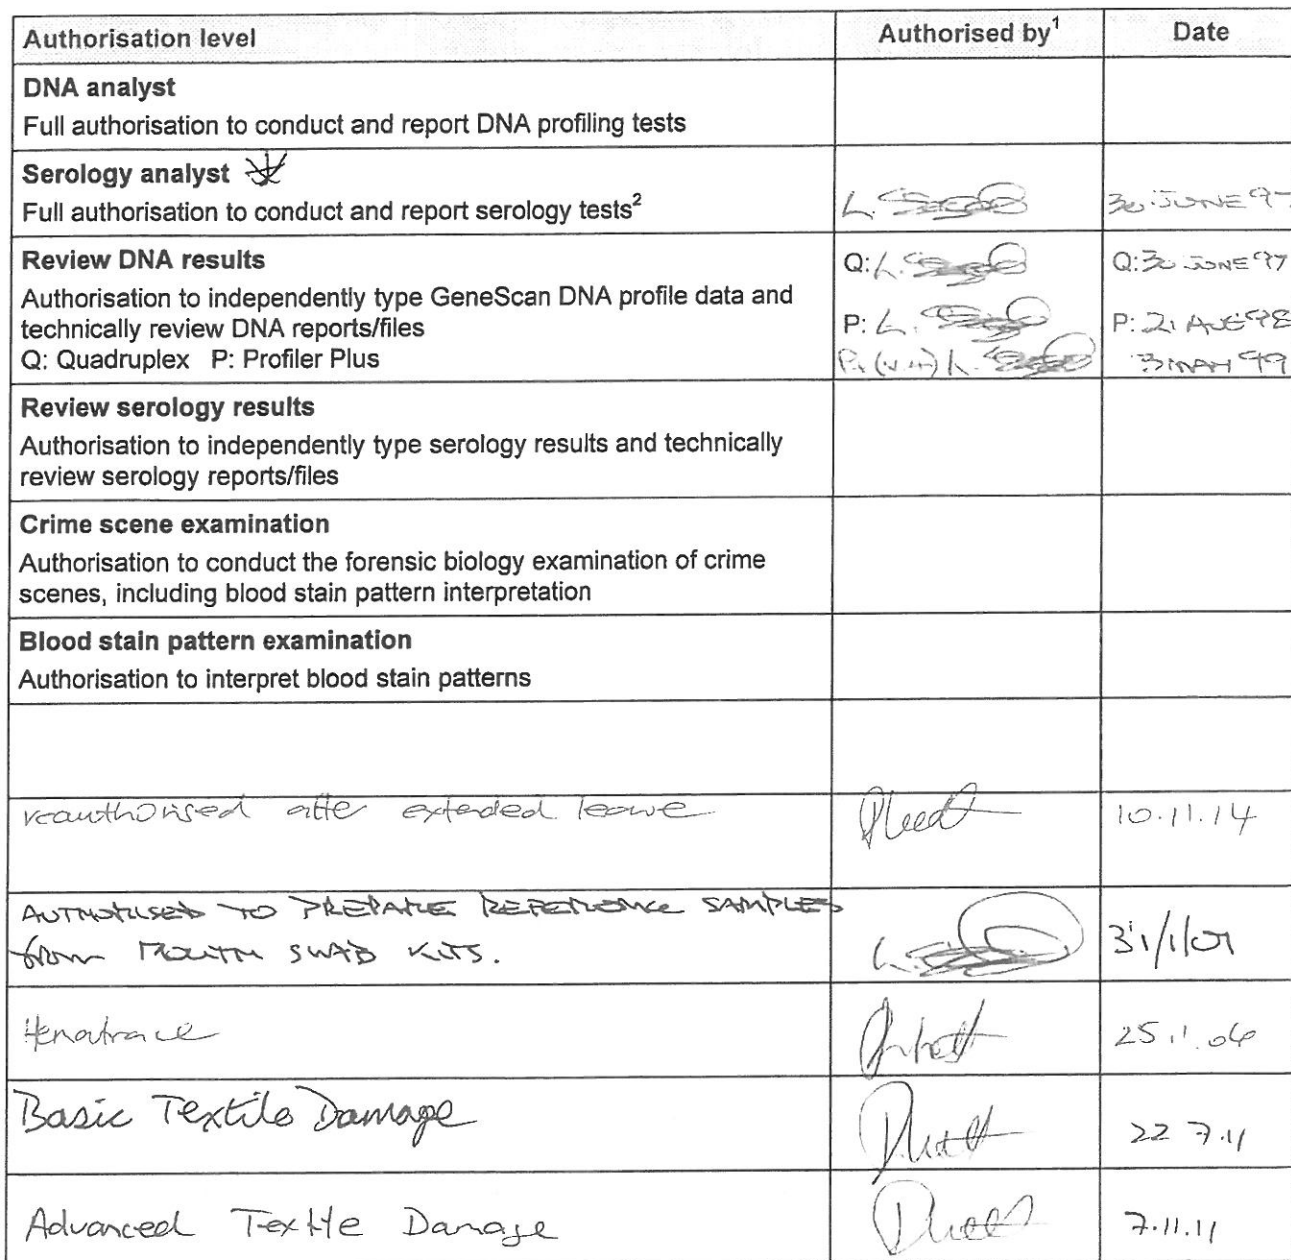 Authorisation level Authorised by¹ Date
DNA analyst
Full authorisation to conduct and report DNA profiling tests
Serology analyst
Full authorisation to conduct and report serology tests² L. 30 JUNE 97
Review DNA results Q: L. Q: 30 JUNE 97
Authorisation to independently type GeneScan DNA profile data and
technically review DNA reports/files P: L. P: 21 AUG 98
Q: Quadruplex P: Profiler Plus L. 99
Review serology results
Authorisation to independently type serology results and technically
review serology reports/files
Crime scene examination
Authorisation to conduct the forensic biology examination of crime
scenes, including blood stain pattern interpretation
Blood stain pattern examination
Authorisation to interpret blood stain patterns
reauthorised after extended leave 10.11.14
AUTHORISED TO PREPARE REFERENCE SAMPLES
from MOUTH SWAB KITS. L.
Hematrace 25.11.06
Basic Textile Damage 22 7.11
Advanced Textile Damage 7.11.11